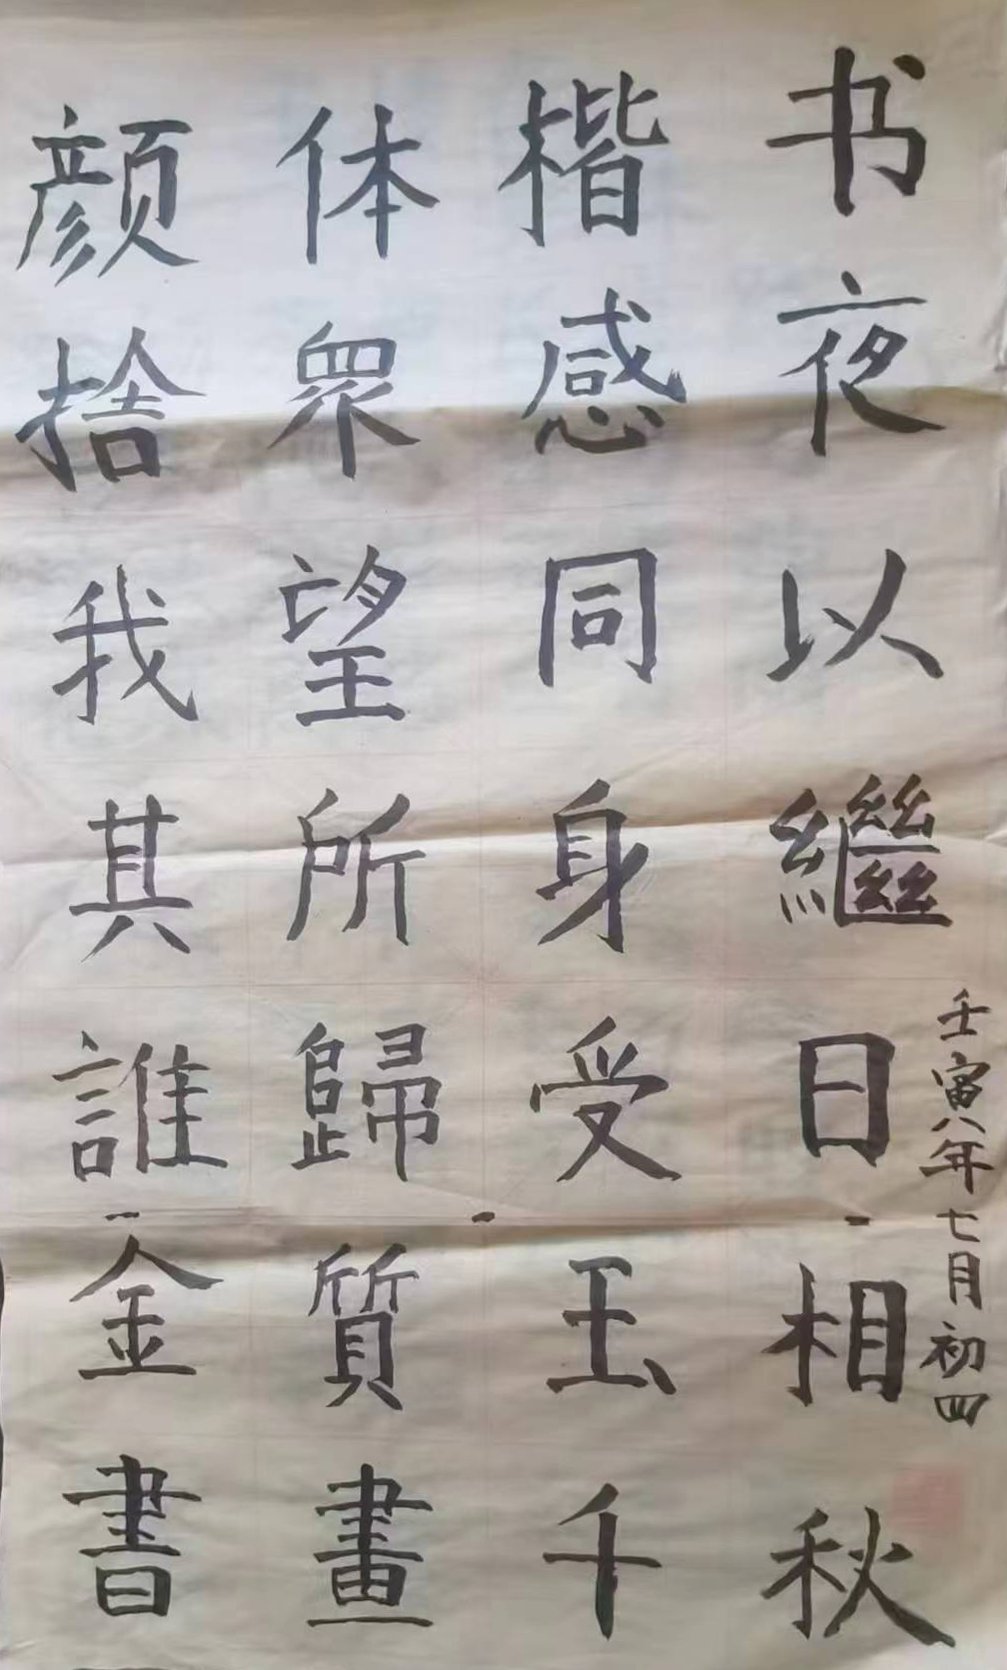 颜体楷书
捨我其誰
眾望所歸
感同身受
夜以繼日
金質玉相
書畫千秋
壬寅八年七月初四